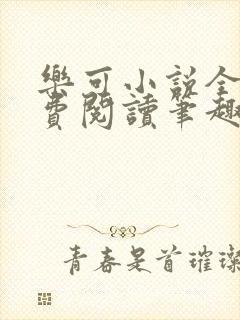 樂可小說全
費閱讀筆趣
青春是首璀璨